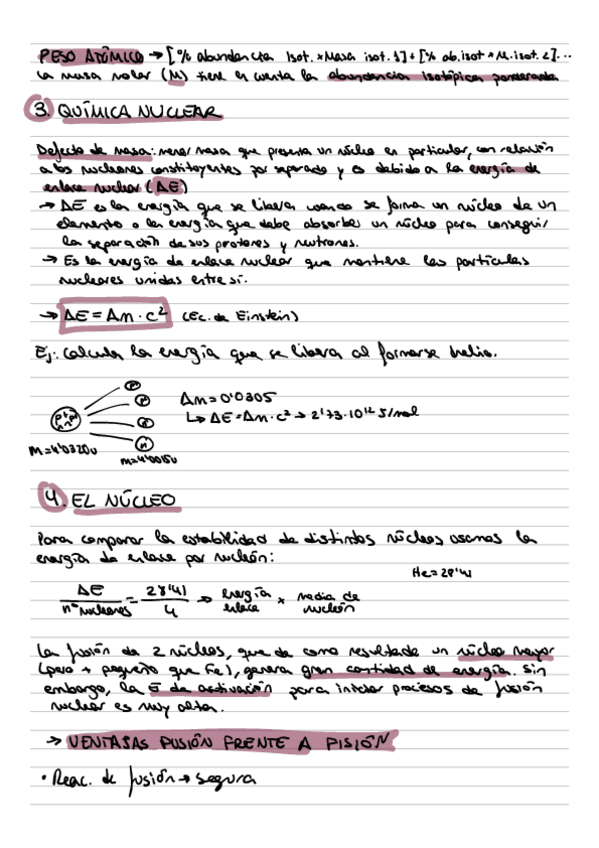 PESO ATÓMICO → [% abundancia isot. x Masa isot. 1] + [% ab. isot x M. isot. 2]...
La masa molar (M) tiene en cuenta la abundancia isotópica ponderada
3. QUÍMICA NUCLEAR
Defecto de masa: menor masa que presenta un núcleo en particular, con relación
a los nucleones constituyentes por separado y es debido a la energía de
enlace nuclear (ΔE)
→ ΔE es la energía que se libera cuando se forma un núcleo de un
elemento o la energía que debe absorber un núcleo para conseguir
la separación de sus protones y neutrones.
→ Es la energía de enlace nuclear que mantiene las partículas
nucleares unidas entre sí.
→ ΔE = Δm · c² (Ec. de Einstein)
Ej: calcula la energía que se libera al formarse helio.
Δm = 0'0305
↳ ΔE = Δm · c² → 2'73 · 10¹² J/mol
m=4'0320u
m=4'0015u
4. EL NÚCLEO
Para comparar la estabilidad de distintos núcleos usamos la
energía de enlace por nucleón:
He = 28'41
ΔE / nº nucleones = 28'41 / 4 → energía enlace x media de nucleón
La fusión de 2 núcleos, que da como resultado un núcleo mayor
(pero + pequeño que Fe), genera gran cantidad de energía. Sin
embargo, la E de activación para iniciar procesos de fusión
nuclear es muy alta.
→ VENTAJAS FUSIÓN FRENTE A FISIÓN
• Reac. de fusión → segura